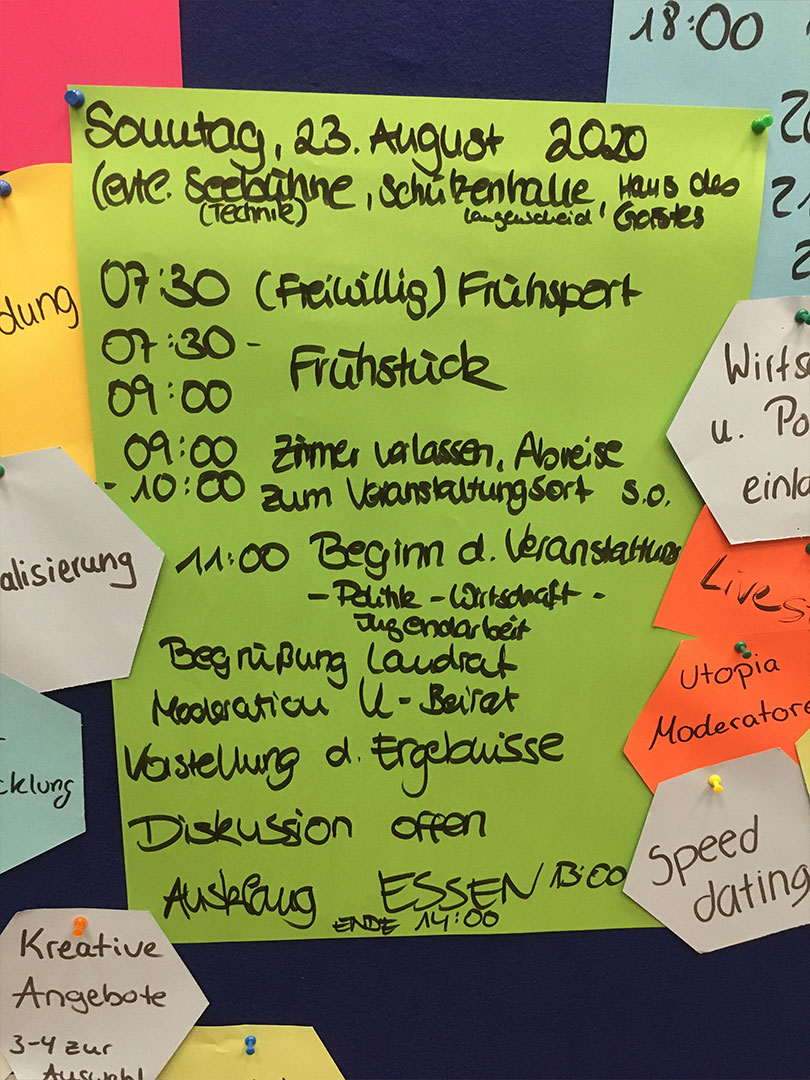 18:00
Sonntag, 23. August 2020
(evtl. Seebühne, Schützenhalle, Haus des
(Technik) Langenscheid, Gastes
07:30 (Freiwillig) Frühsport
07:30 -
Frühstück
09:00
09:00 Zimmer verlassen, Abreise
- 10:00 zum Veranstaltungsort s.o.
11:00 Beginn d. Veranstaltung
- Politik - Wirtschaft -
Jugendarbeit
Begrüßung Landrat
Moderation U-Beirat
Vorstellung d. Ergebnisse
Diskussion offen
Ausklang ESSEN 13:00
ENDE 14:00
dung
alisierung
cklung
Kreative
Angebote
3-4 zur
Auswahl
Wirtsc
u. Po
einla
Lives
Utopia
Moderatore
Speed
dating